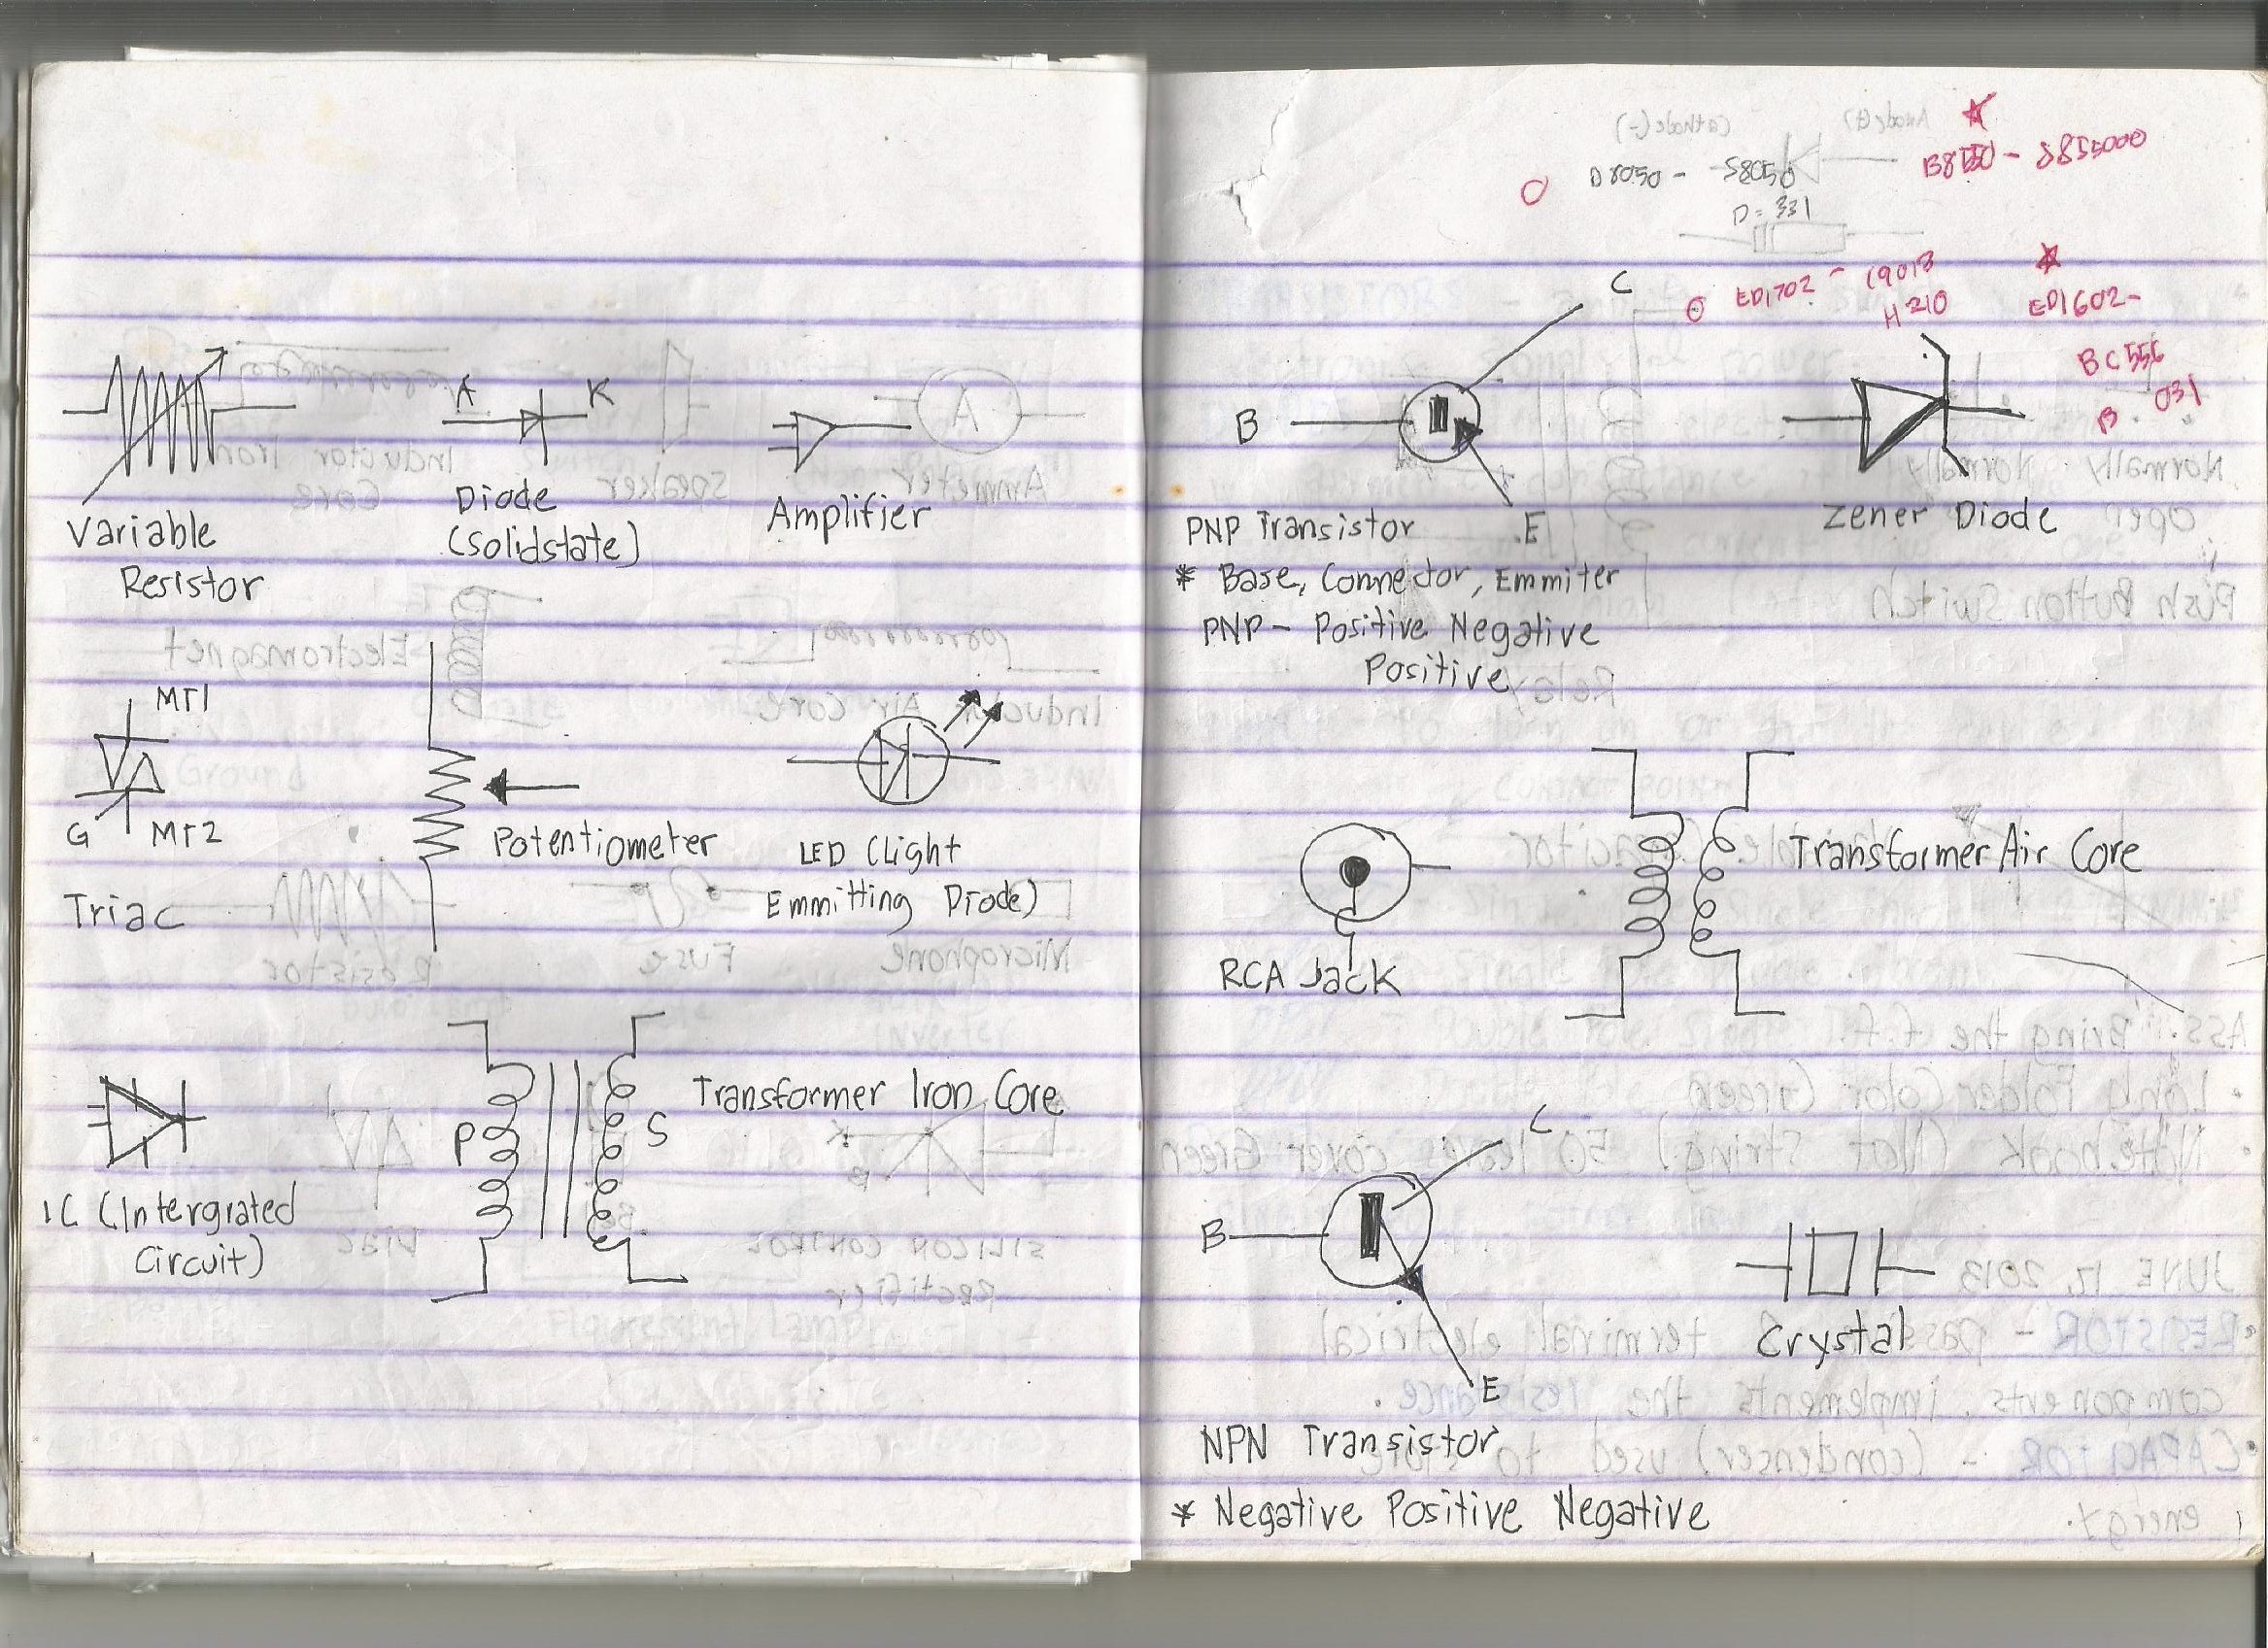 A
K
Variable
Resistor
Diode
(Solidstate)
Amplifier
MT1
G
MT2
Triac
Potentiometer
LED (Light
Emmitting Diode)
IC (Intergrated
Circuit)
P
S
Transformer Iron Core
B8550 - S855000
D8050 - S8050
D = 331
ED1702 - C9013
H 210
ED1602-
BC556
B 031
C
B
E
PNP Transistor
* Base, Connector, Emmiter
PNP - Positive Negative
Positive
Zener Diode
RCA Jack
Transformer Air Core
C
B
E
NPN Transistor
* Negative Positive Negative
Crystal